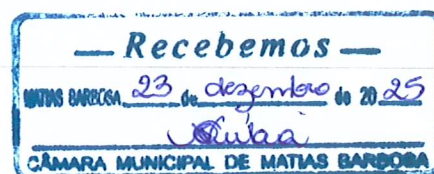 — Recebemos —
MATIAS BARBOSA, 23 de dezembro de 2025
CÂMARA MUNICIPAL DE MATIAS BARBOSA